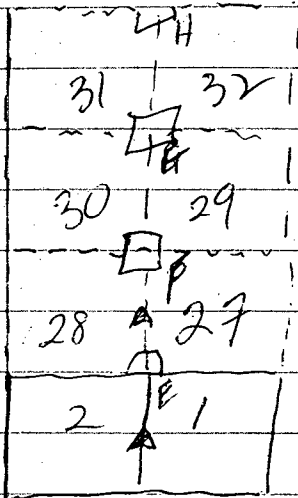 H
31 32
30 29
P
28 27
E
2 1